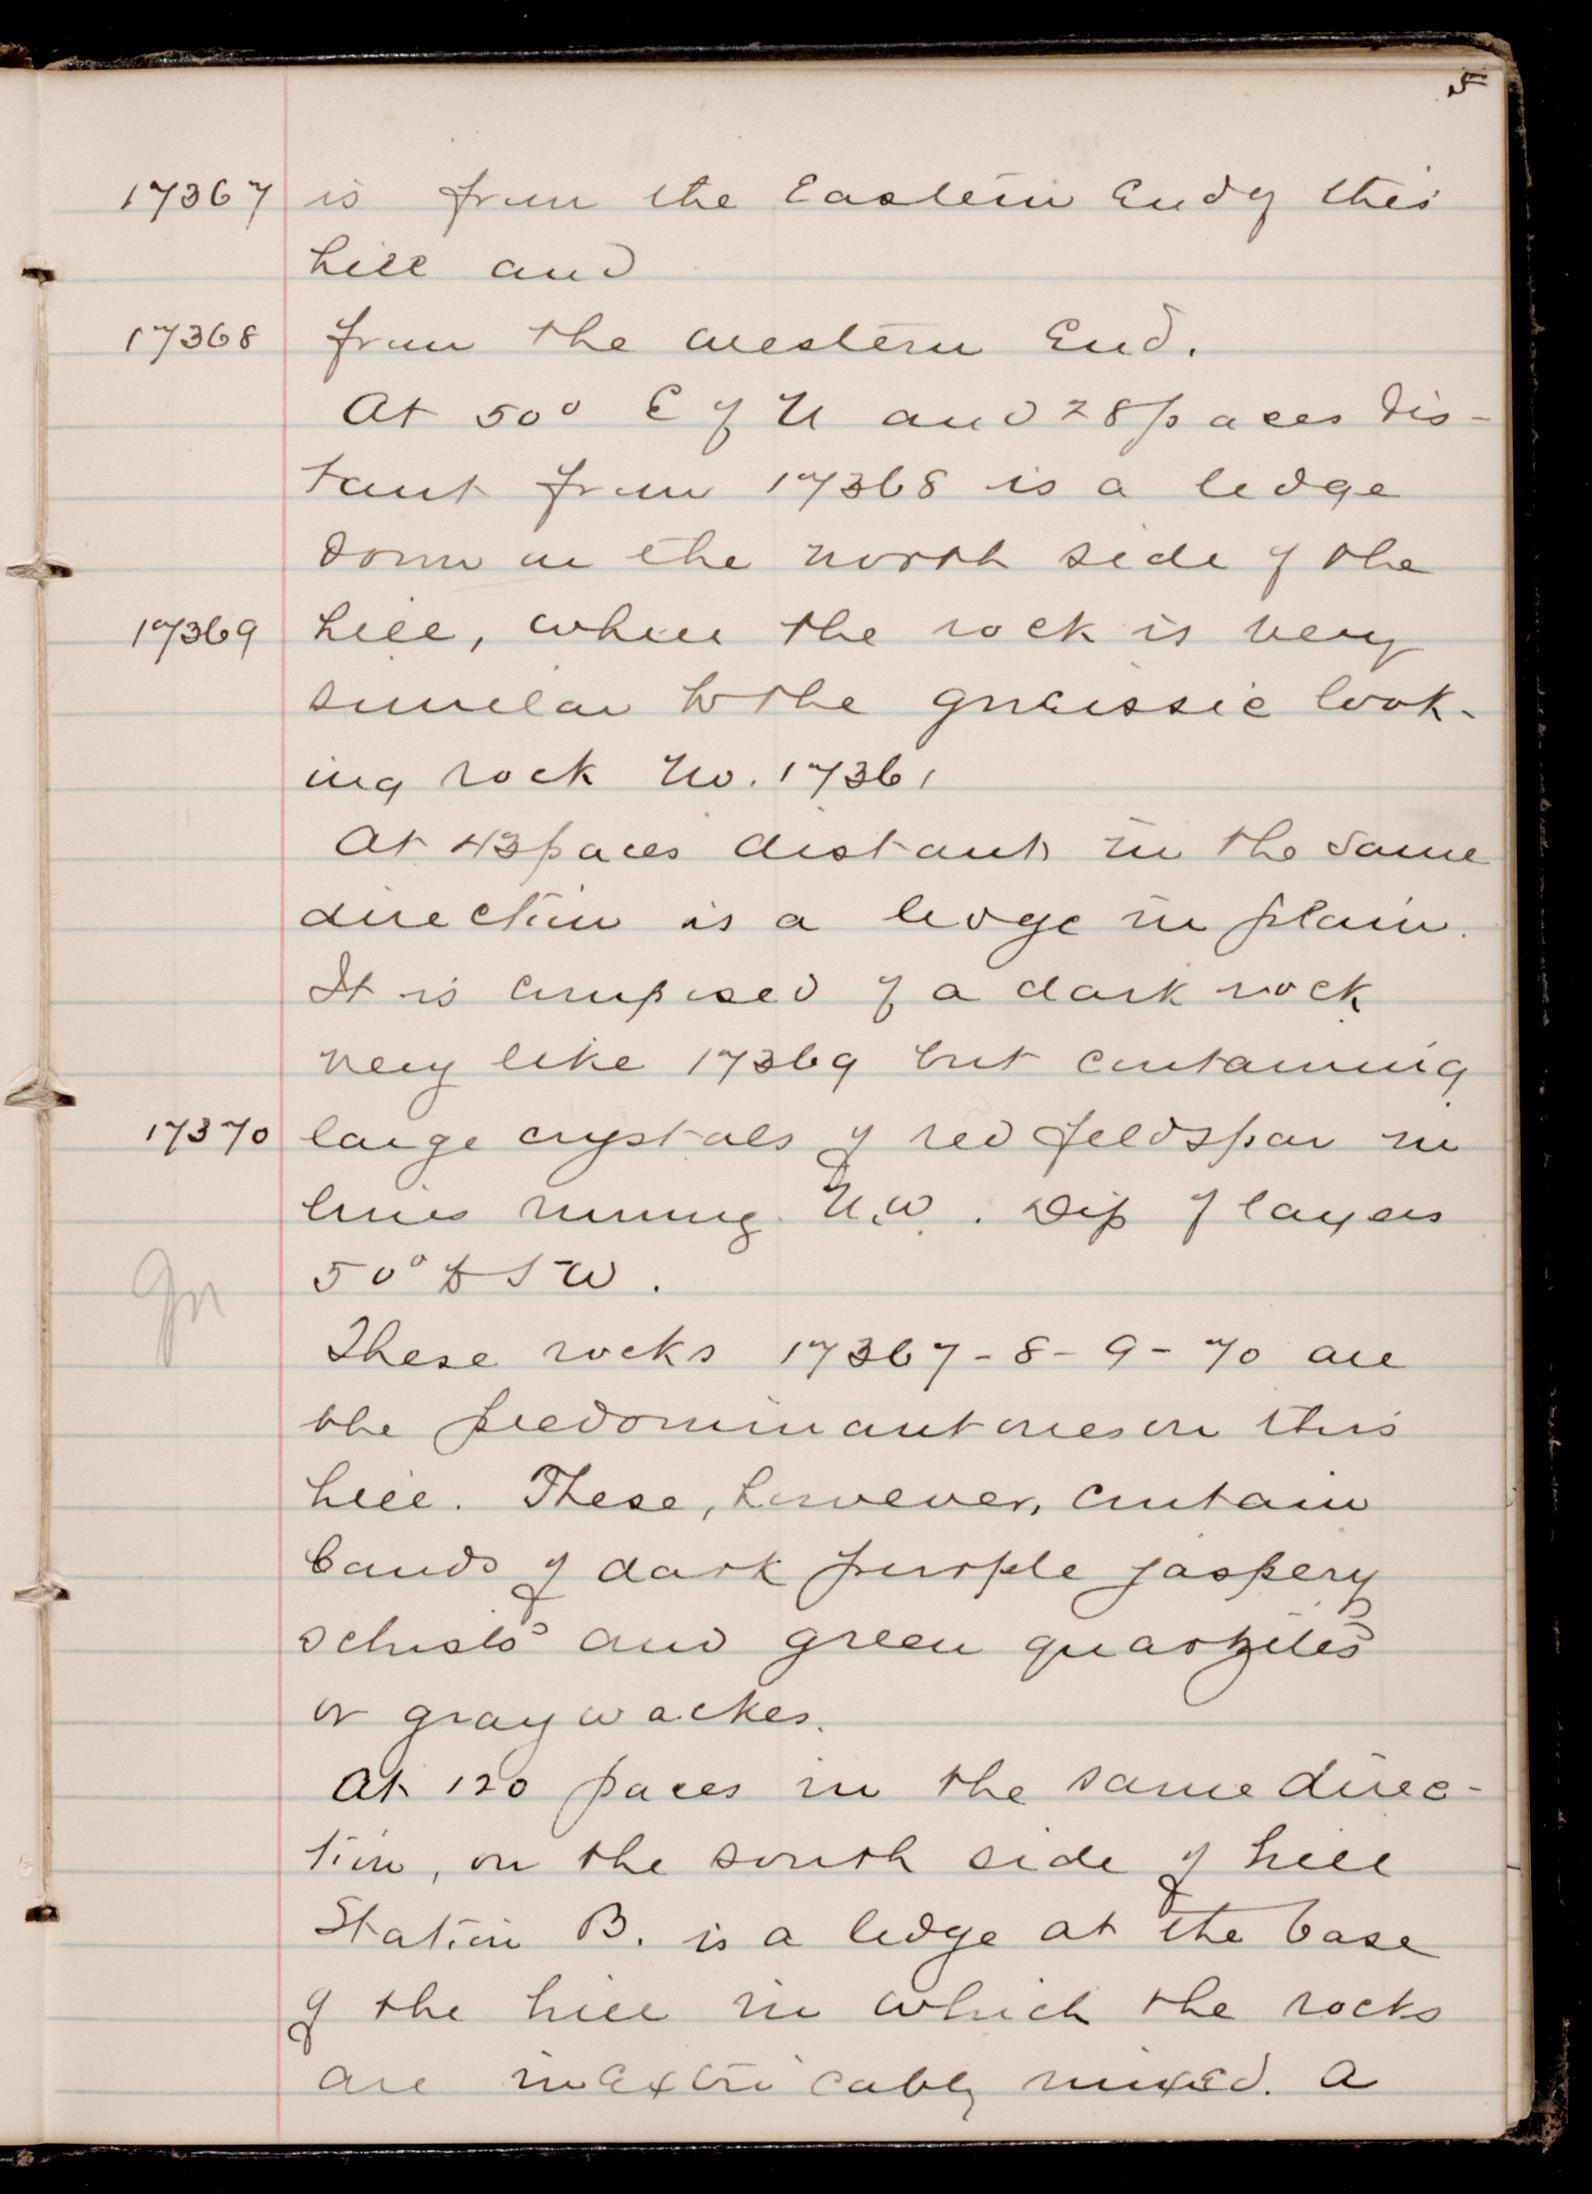 5
17367 is from the Eastern End of this
hill and
17368 from the western End.
At 50° E of N and 28 paces dis-
tant from 17368 is a ledge
down on the north side of the
17369 hill, where the rock is very
similar to the gneissic look-
ing rock No. 17361
At 43 paces distant in the same
direction is a ledge in plain.
It is composed of a dark rock
very like 17369 but containing
17370 large crystals of red feldspar in
lines running N.W. Dip of layers
50° to SW.
gn
These rocks 17367-8-9-70 are
the predominant ones on this
hill. These, however, contain
bands of dark purple jaspery
schists and green quartzites
or graywackes.
At 120 paces in the same direc-
tion, on the south side of hill
Station B. is a ledge at the base
of the hill in which the rocks
are inextricably mixed. A